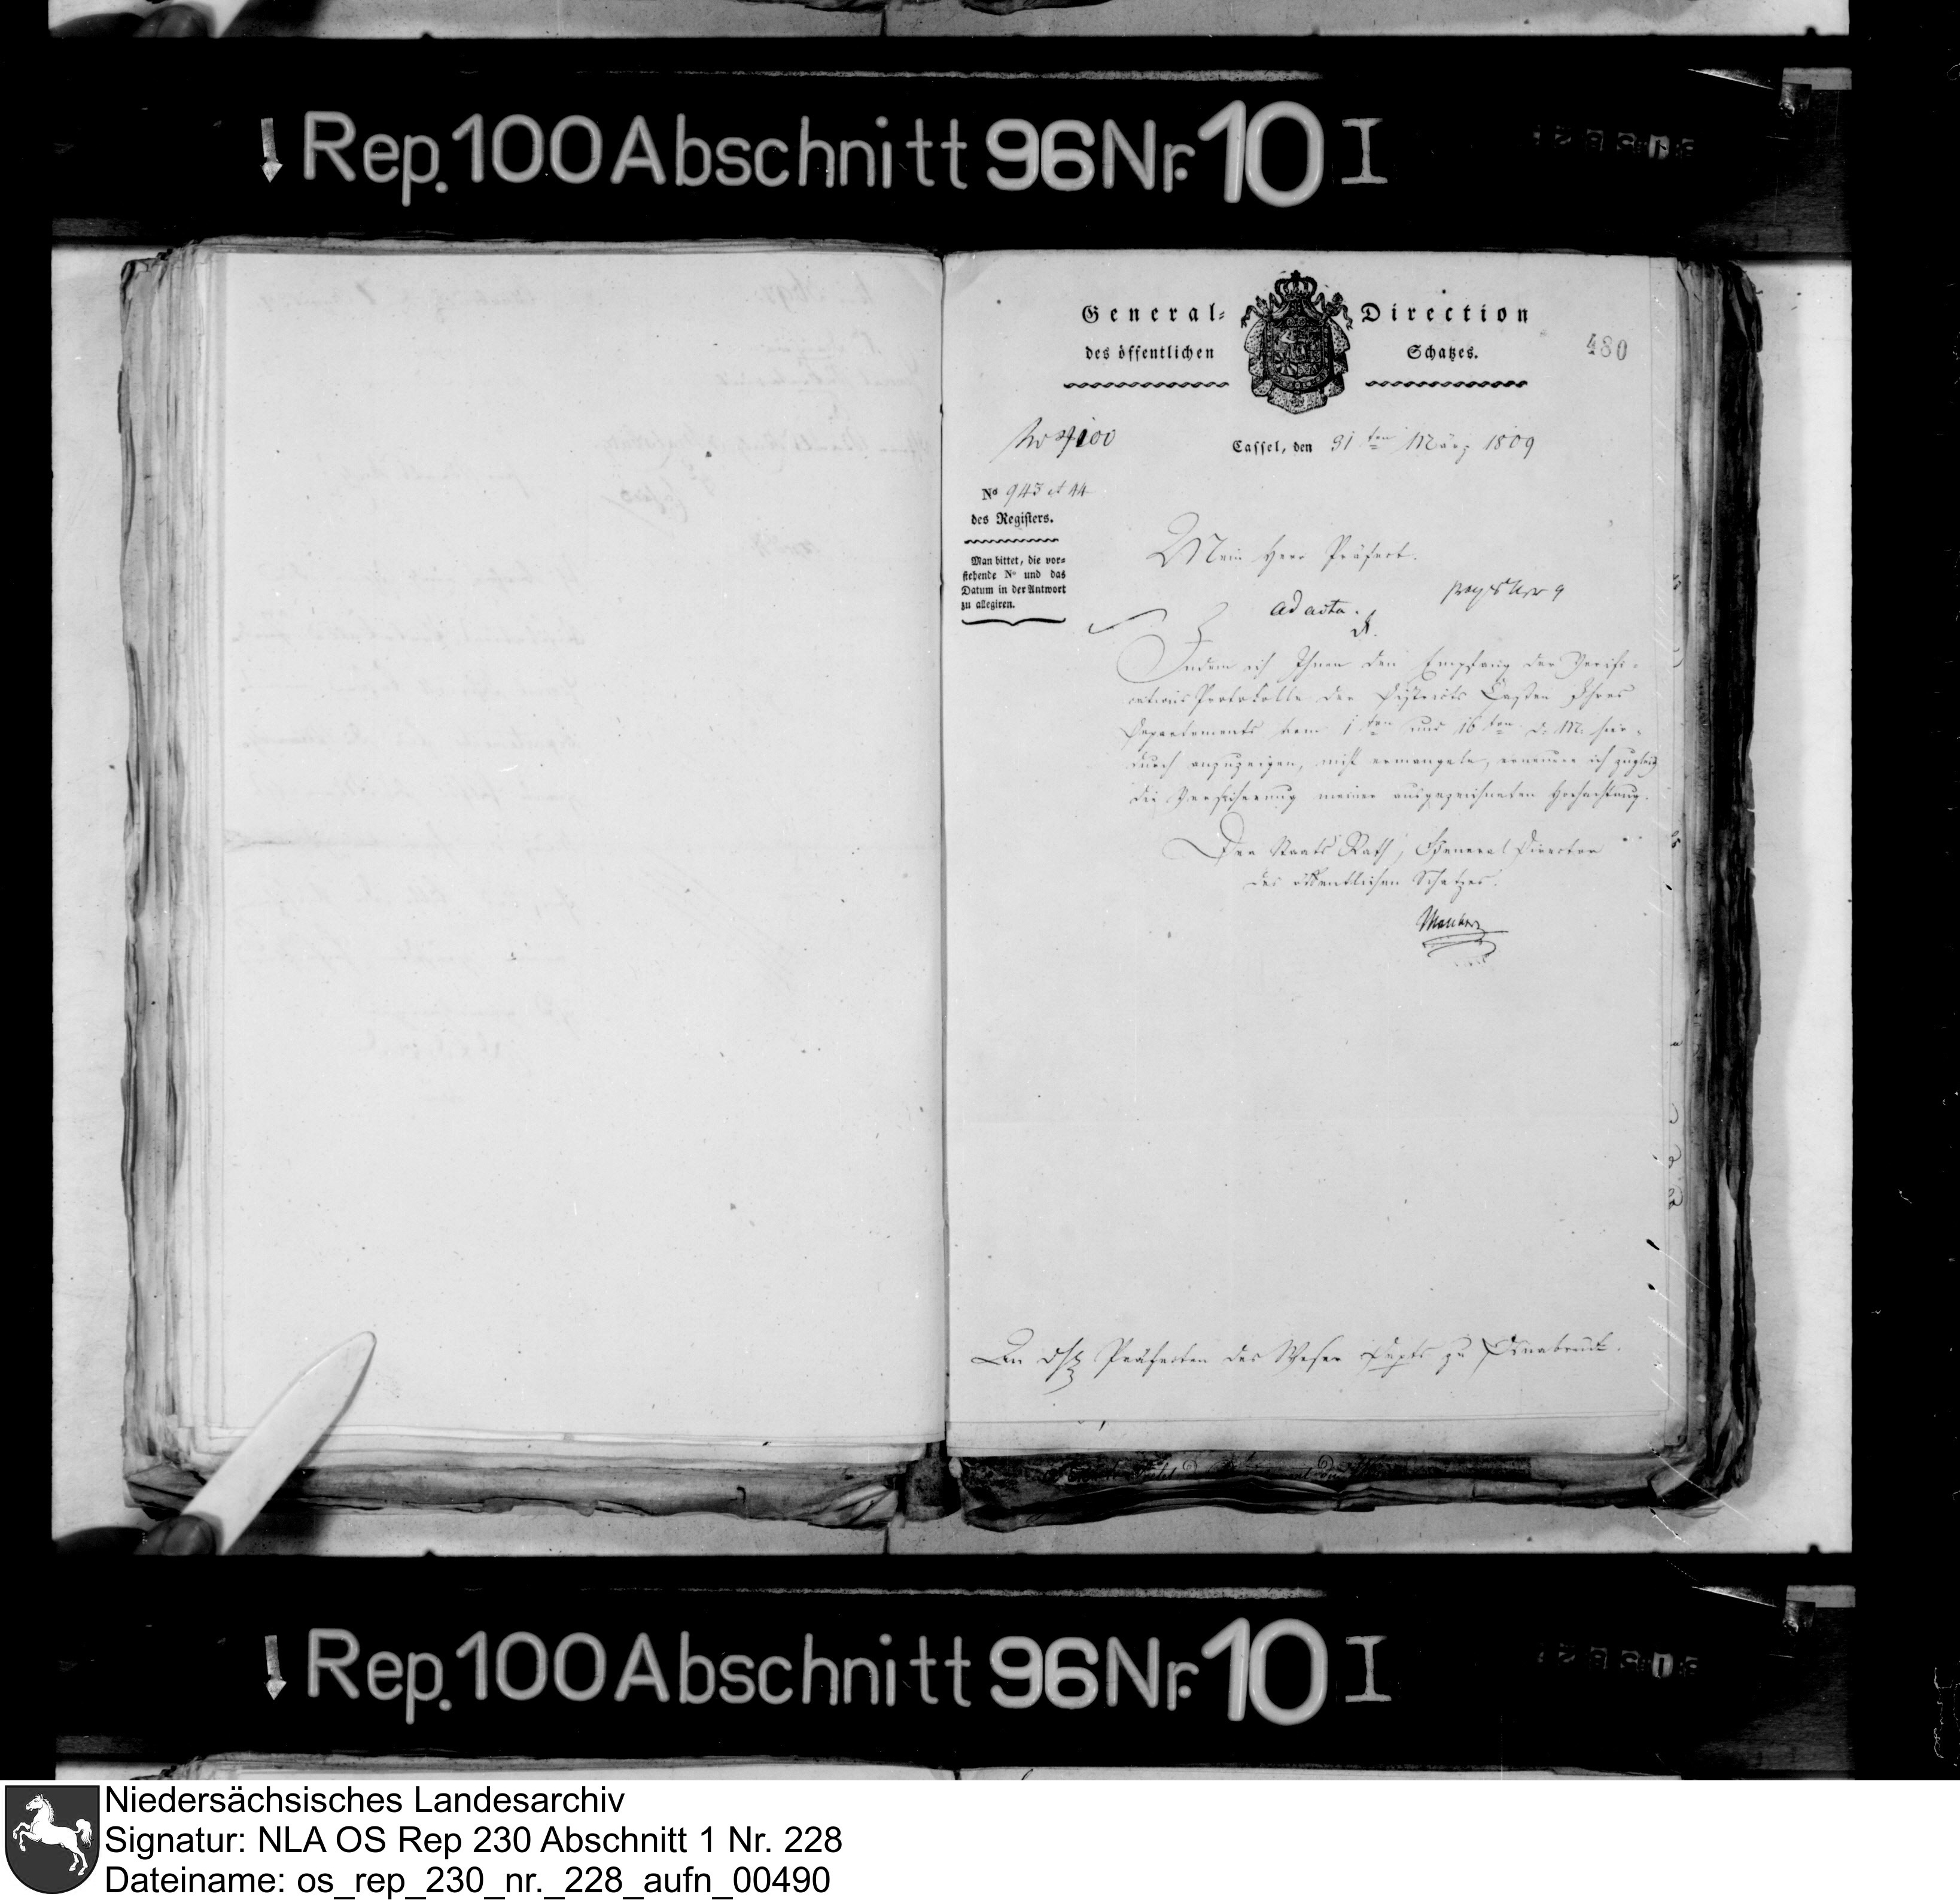 Rep. 100 Abschnitt 96 Nr. 10 I
General-Direction
des öffentlichen Schatzes.
480
Cassel, den 31ten März 1809
No 943 et 44
des Registers.
Man bittet, die vor-
stehende No und das
Datum in der Antwort
zu allegiren.
Mein Herr Präfect.
ad acta.
Indem ich Ihnen den Empfang der Verifi-
cations Protokolle der Districts Cassen Ihres
Departements vom 1ten und 16ten d. M. hier-
durch anzuzeigen, nicht ermangele, erneuere ich zugleich
die Versicherung meiner ausgezeichneten Hochachtung.
Der Staats Rath, General Director
des öffentlichen Schatzes.
An Präfecten des Weser Depts zu Osnabrück.
Rep. 100 Abschnitt 96 Nr. 10 I
Niedersächsisches Landesarchiv
Signatur: NLA OS Rep 230 Abschnitt 1 Nr. 228
Dateiname: os_rep_230_nr._228_aufn_00490